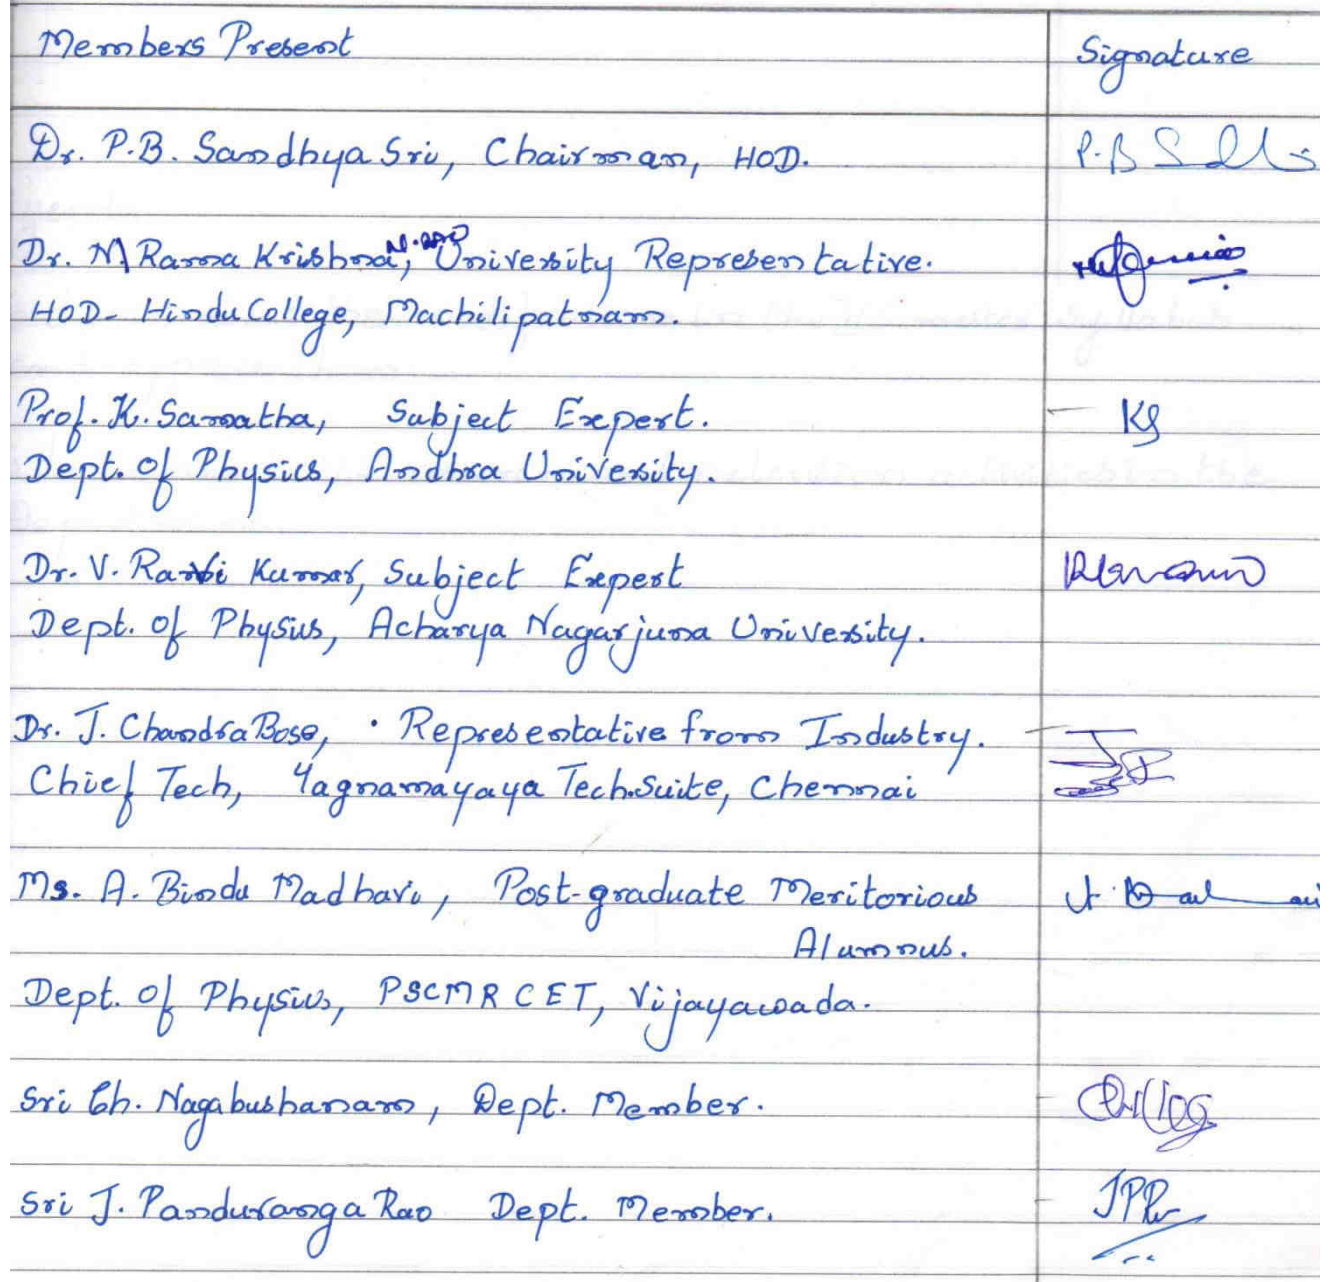 Members Present Signature
Dr. P.B. Sandhya Sri, Chairman, HOD. P.B
Dr. M Rama Krishna, N.RAO University Representative.
HOD- Hindu College, Machilipatnam.
Prof. K. Samatha, Subject Expert. KS
Dept. of Physics, Andhra University.
Dr. V. Ravi Kumar, Subject Expert
Dept. of Physics, Acharya Nagarjuna University.
Dr. J. Chandra Bose, Representative from Industry.
Chief Tech, Yagnamayaya Tech.Suite, Chennai
Ms. A. Bindu Madhavi, Post-graduate Meritorious
Alumnus.
Dept. of Physics, PSCMR CET, Vijayawada.
Sri Ch. Nagabushanam, Dept. Member.
Sri J. Panduranga Rao Dept. Member. JPR